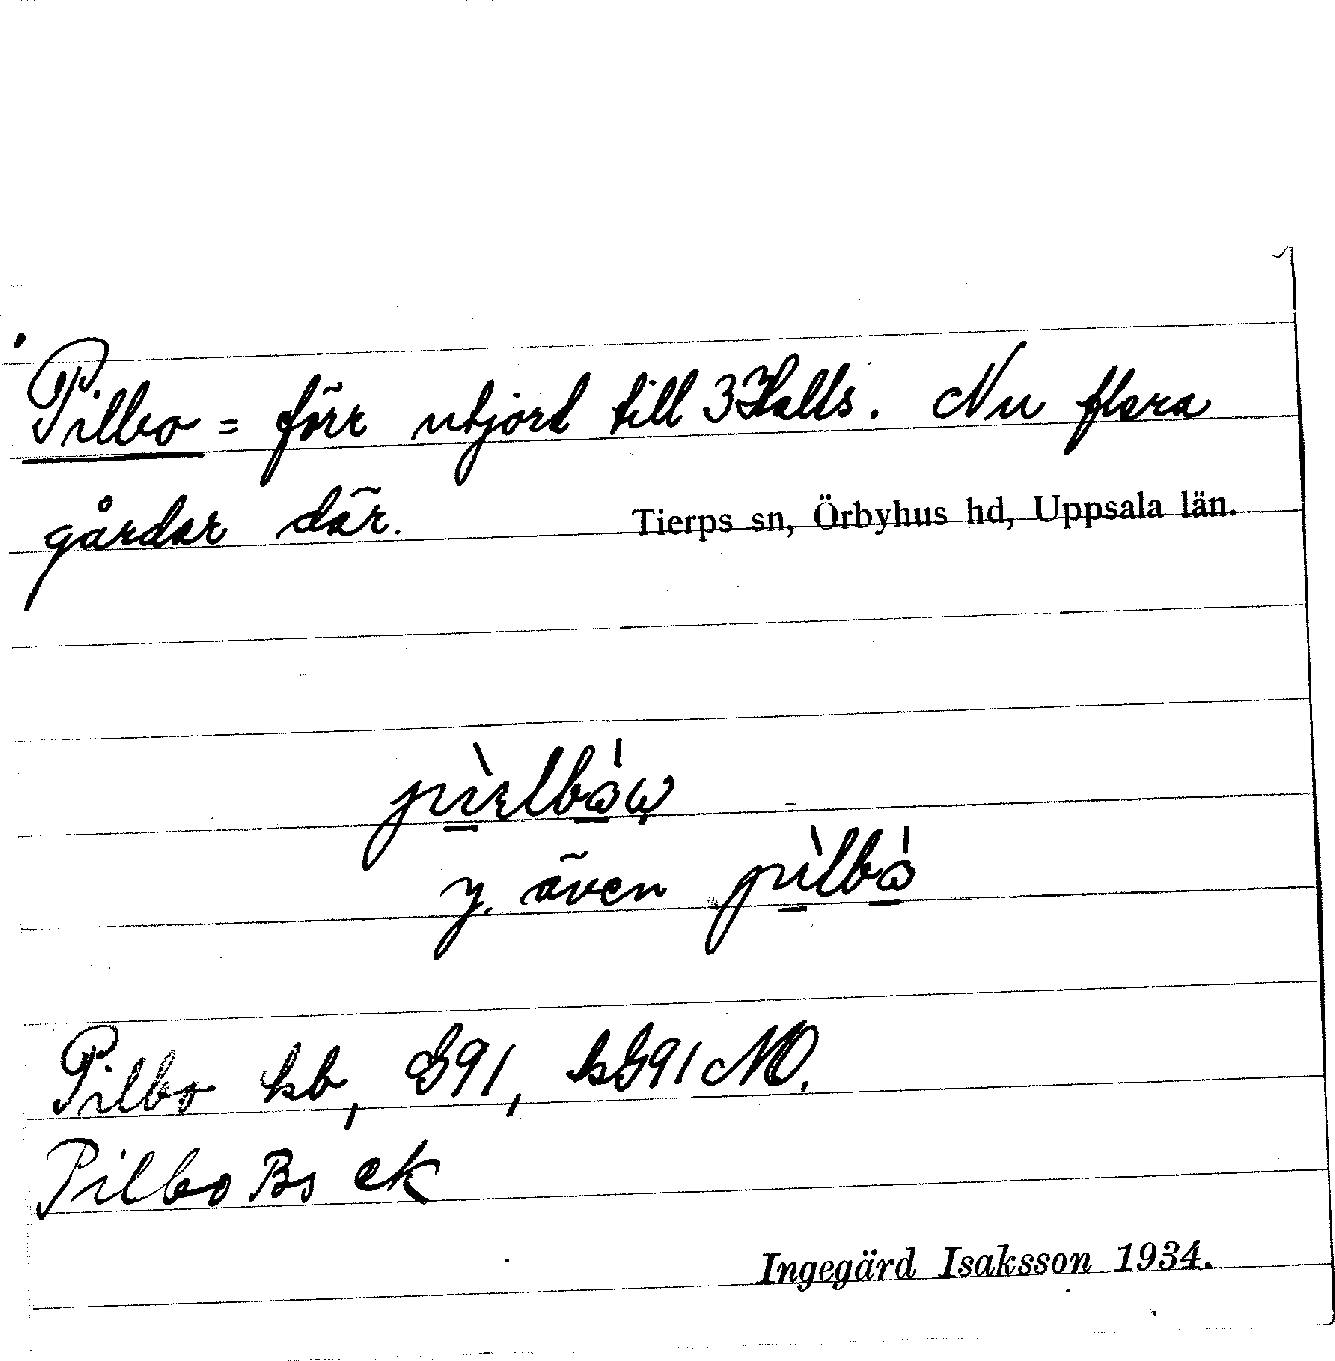 Pilbo = förr utjord till 3 Halls. Nu flera
gårdar där.
Tierps sn, Örbyhus hd, Uppsala län.
y. även
Pilbo kb, G91, kG91 NO.
Pilbo Bs ek
Ingegärd Isaksson 1934.